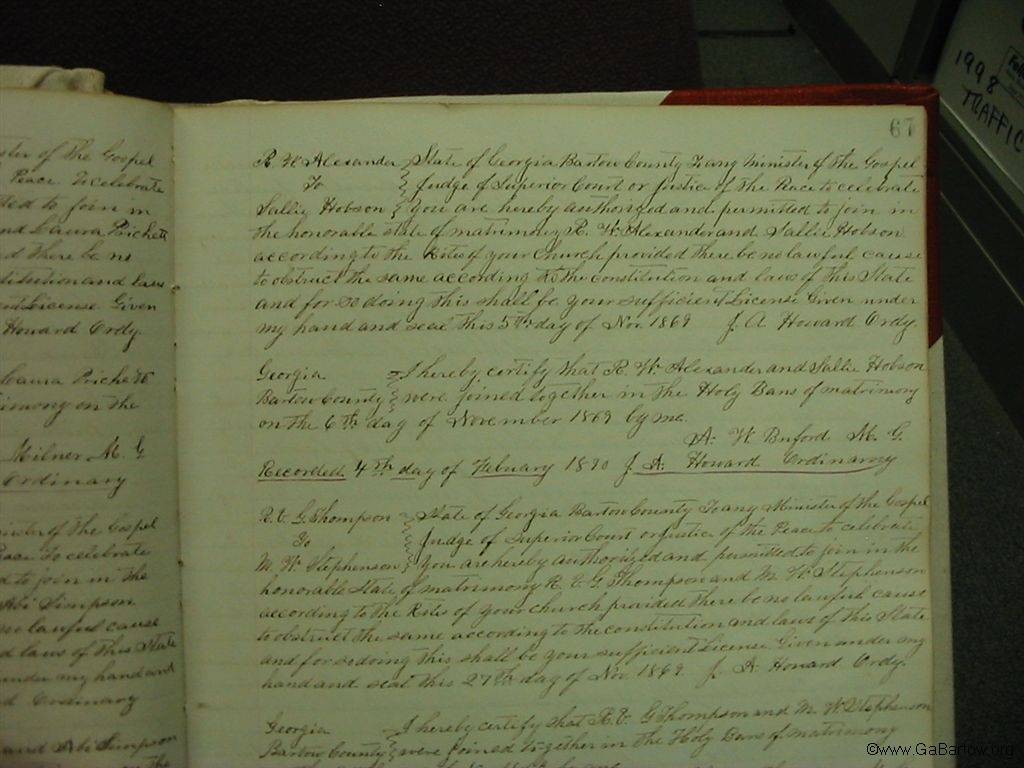 ster of the Gospel
Peace To celebrate
ted to join in
nd Laura Prichett
d there be no
stitution and laws
ent License Given
Howard Ordy.
Laura Prichett
imony on the
Milner M. G
Ordinary
nister of the Gospel
Peace To celebrate
d to join in the
Abi Simpson
no lawful cause
d laws of this State
under my hand and
d Ordinary
and Abi Simpson
on the
67
R W Alexander State of Georgia Bartow County To any Minister of the Gospel
To Judge of Superior Court or Justice of the Peace to celebrate
Sallie Hobson You are hereby authorized and permitted to join in
the honorable state of matrimony R. W. Alexander and Sallie Hobson
according to the Rites of your Church provided there be no lawful cause
to obstruct the same according to the constitution and laws of this State
and for so doing this shall be your sufficient License Given under
my hand and seal this 5th day of Nov. 1869 J. A Howard Ordy.
Georgia I hereby certify that R. W. Alexander and Sallie Hobson
Bartow County were joined together in the Holy Bans of matrimony
on the 6th day of November 1869 by me.
A. W Buford M. G.
Recorded 4th day of Febuary 1870 J. A. Howard Ordinarny
R. E G. Thompson State of Georgia Bartow County To any Minister of the Gospel
To Judge of Superior Court or Justice of the Peace to celebrate
M. W. Stephenson You are hereby authorized and permitted to join in the
honorable State of matrimony R. E. G Thompson and M. W. Stephenson
according to the Rites of your church provided there be no lawful cause
to obstruct the same according to the constitution and laws of this State
and for so doing this shall be your sufficient License Given under my
hand and seal this 27th day of Nov. 1869. J. A. Howard Ordy.
Georgia I hereby certify that R. E. G Thompson and M. W Stephenson
Bartow County were joined together in the Holy Bans of matrimony
1998
TRAFFIC
©www.GaBartow.org